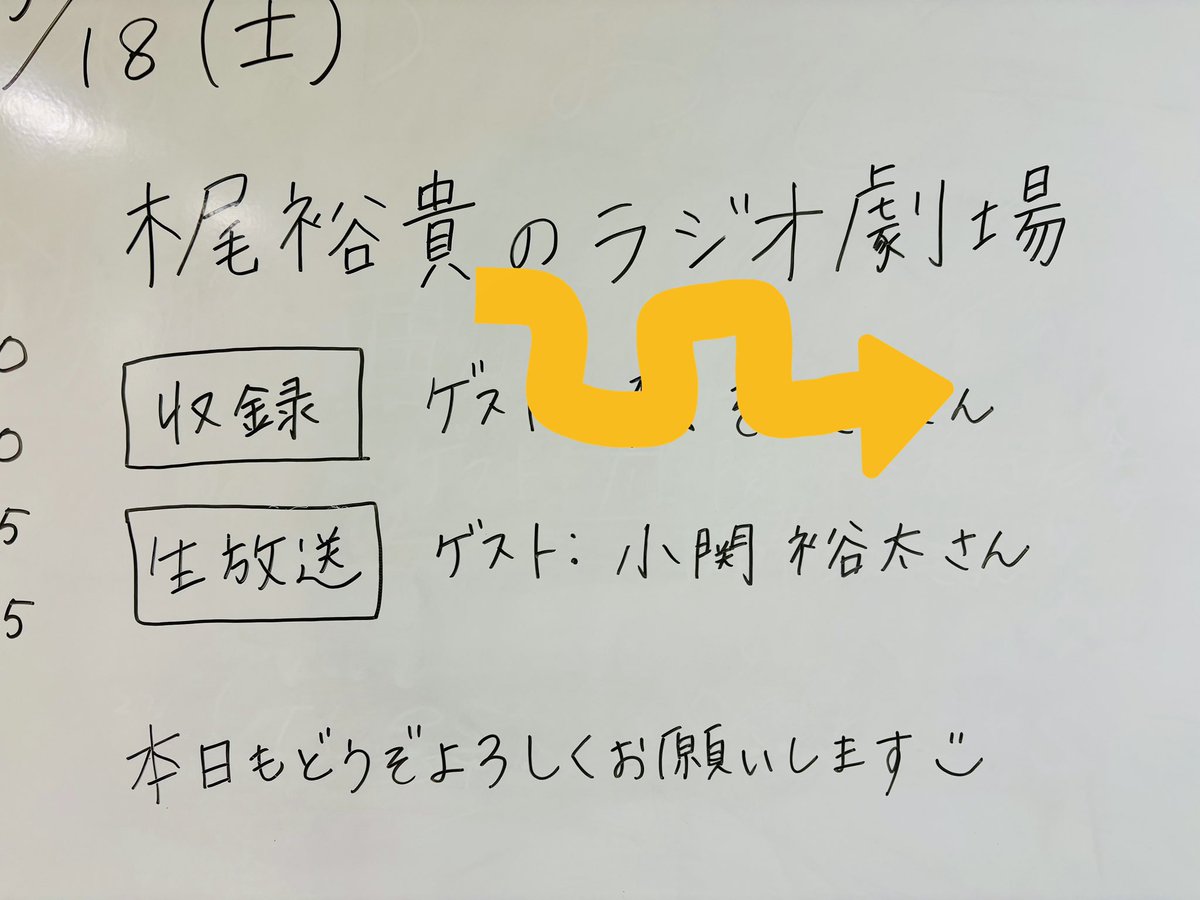 /18(土)
梶裕貴のラジオ劇場
収録 ゲスト
生放送 ゲスト:小関 裕太さん
本日もどうぞよろしくお願いします
0
0
5
5